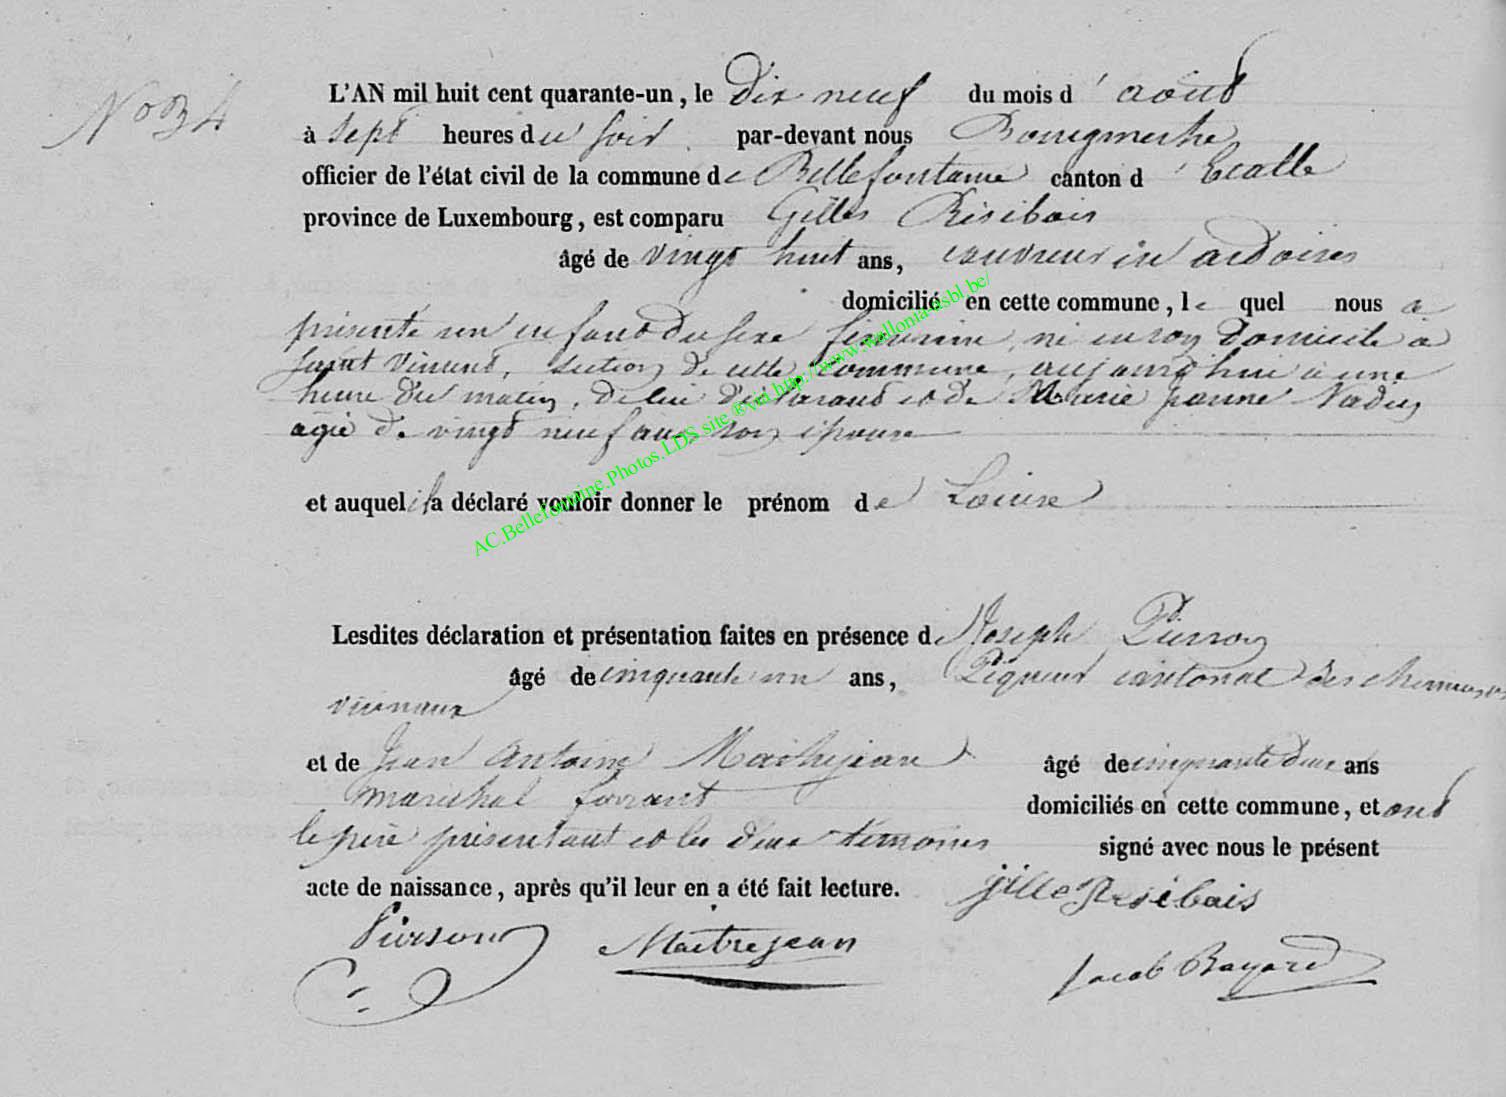 No 34
L'AN mil huit cent quarante-un, le Dix neuf du mois d'août
à sept heures du soir par-devant nous Bourgmestre
officier de l'état civil de la commune de Bellefontaine canton d'Etalle
province de Luxembourg, est comparu Gilles Risibois
âgé de vingt huit ans, couvreur en ardoises
domicilié en cette commune, lequel nous a
présenté un enfant du sexe féminin, né en son Domicile à
Saint Vincent, section de cette commune, aujourd'hui à une
heure du matin, de lui déclarant et de Marie Jeanne Nadin
agée de vingt neuf ans son épouse
et auquel il a déclaré vouloir donner le prénom de Louise
Lesdites déclaration et présentation faites en présence de Joseph Pierson
âgé de cinquante un ans, Piqueur cantonal des chemins
vicinaux
et de Jean Antoine Maitrejean âgé de cinquante deux ans
maréchal ferrant domiciliés en cette commune, et ont
le père présentant et les deux témoins signé avec nous le présent
acte de naissance, après qu'il leur en a été fait lecture. gille Resibois
Pierson Maitrejean
Jacob Bayard
AC.Bellefontaine.Photos.LDS site ®via http://www.wallonia-asbl be/